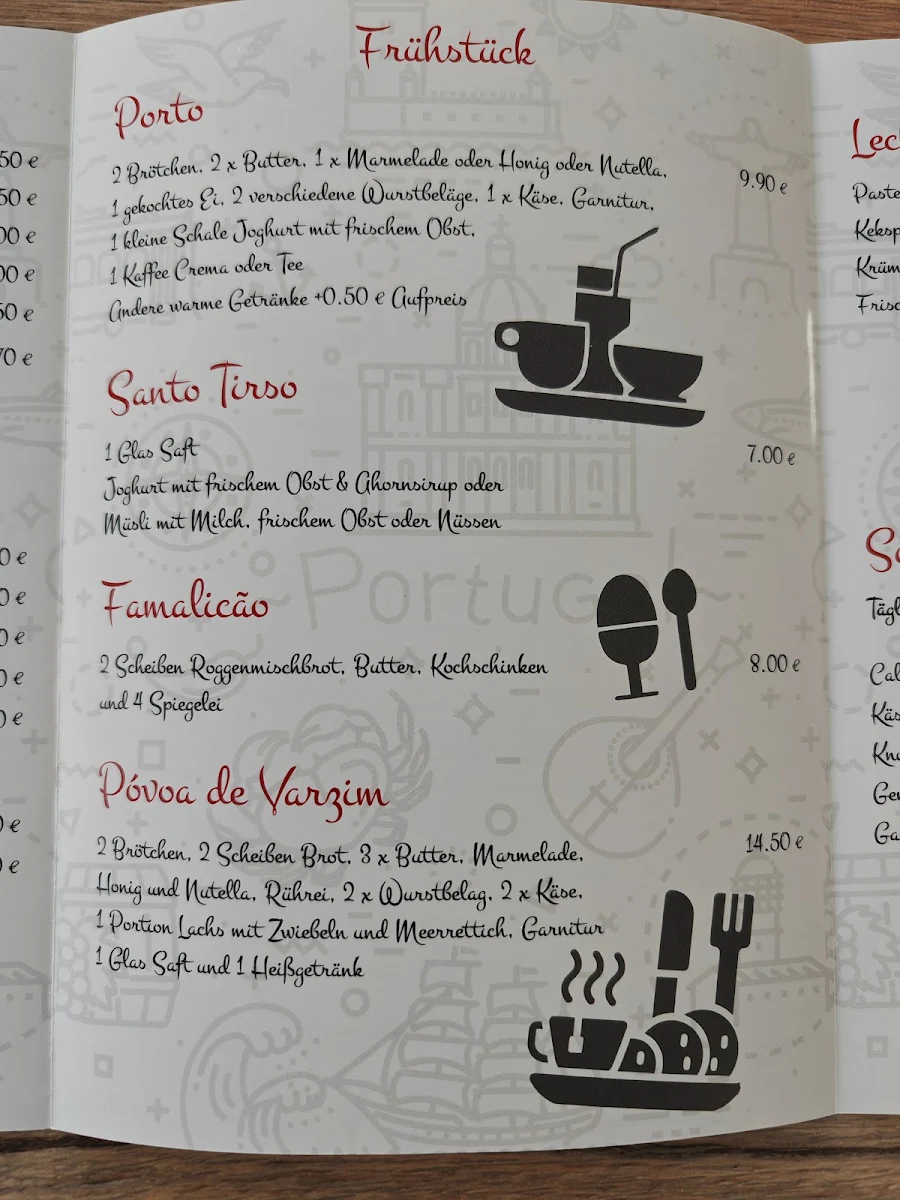 Frühstück
Porto
2 Brötchen, 2 x Butter, 1 x Marmelade oder Honig oder Nutella,
9.90 €
1 gekochtes Ei, 2 verschiedene Wurstbeläge, 1 x Käse, Garnitur,
1 kleine Schale Joghurt mit frischem Obst,
1 Kaffee Crema oder Tee
Andere warme Getränke +0.50 € Aufpreis
Santo Tirso
1 Glas Saft
7.00 €
Joghurt mit frischem Obst & Ahornsirup oder
Müsli mit Milch, frischem Obst oder Nüssen
Portugal
Famalicão
2 Scheiben Roggenmischbrot, Butter, Kochschinken
8.00 €
und 4 Spiegelei
Póvoa de Varzim
2 Brötchen, 2 Scheiben Brot, 3 x Butter, Marmelade,
14.50 €
Honig und Nutella, Rührei, 2 x Wurstbelag, 2 x Käse,
1 Portion Lachs mit Zwiebeln und Meerrettich, Garnitur
1 Glas Saft und 1 Heißgetränk